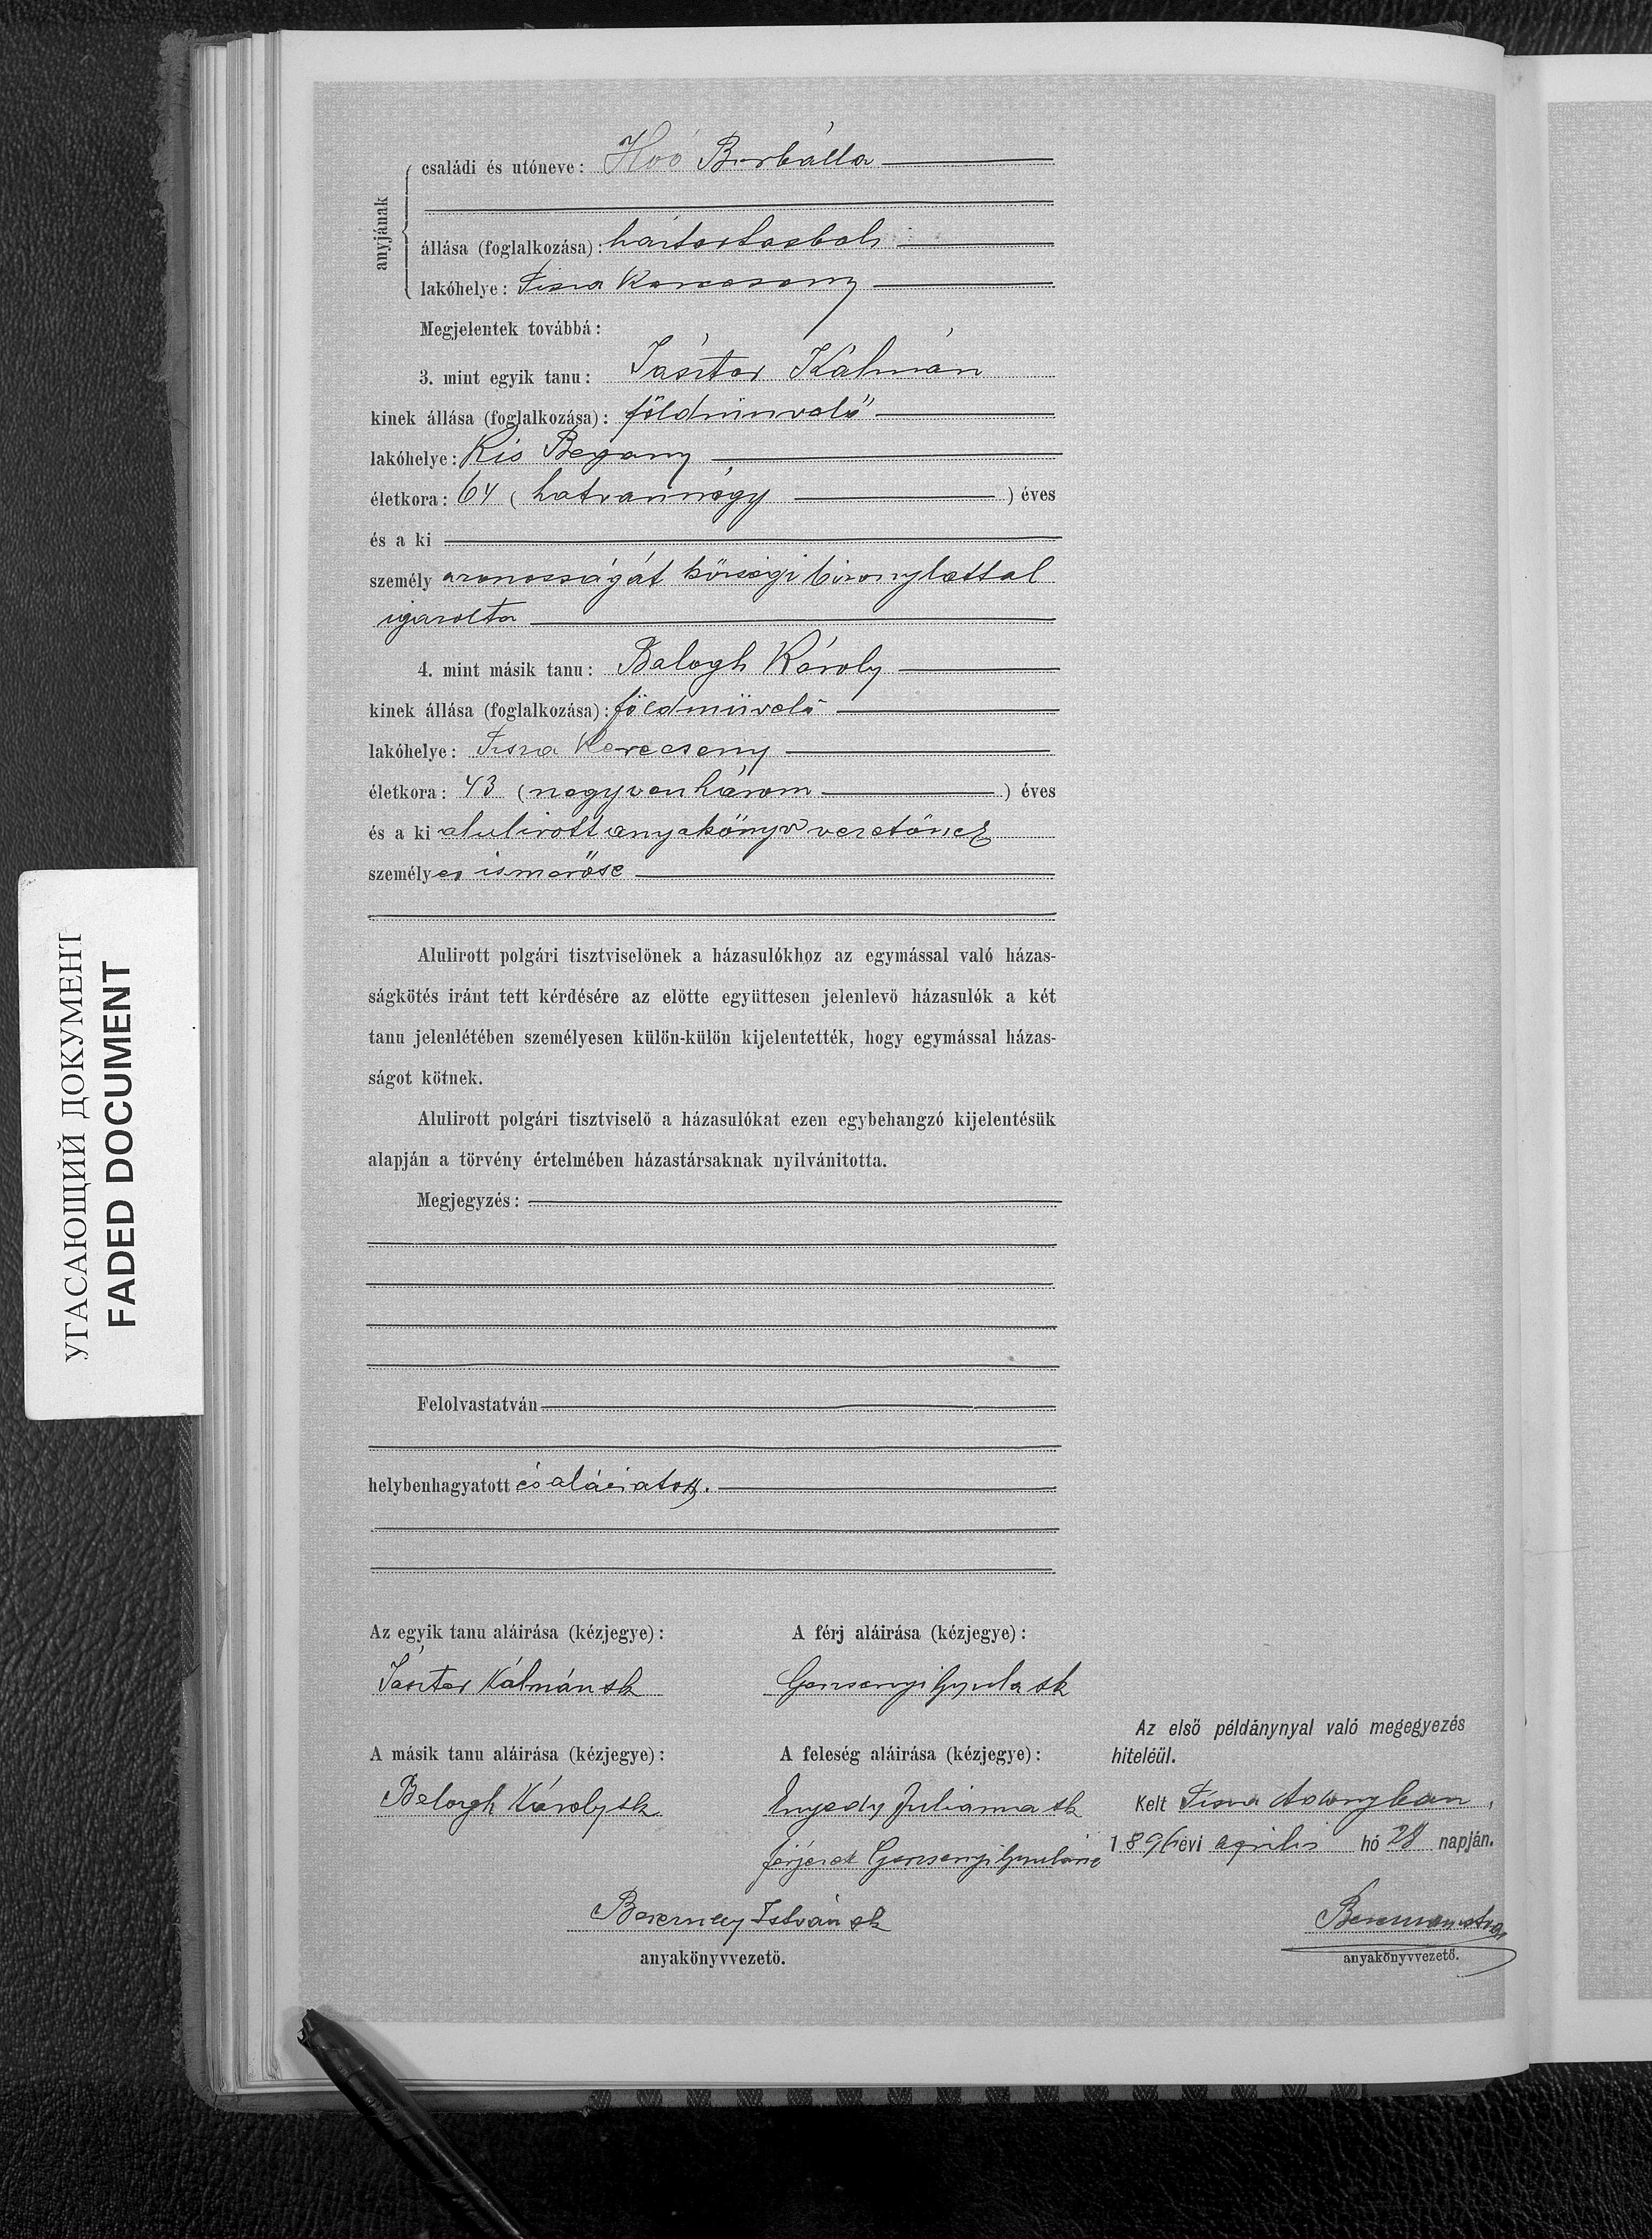 anyjának
családi és utóneve: Hoó Borbálla
állása (foglalkozása): háztartásbeli
lakóhelye: Tisza Kerecseny
Megjelentek továbbá:
3. mint egyik tanu: Pásztor Kálmán
kinek állása (foglalkozása): földmüvelő
lakóhelye: Kis Begany
életkora: 64 (hatvannégy) éves
és a ki
személy azonosságát községi bizonylattal
igazolta
4. mint másik tanu: Balogh Károly
kinek állása (foglalkozása): földmüvelő
lakóhelye: Tisza Kerecseny
életkora: 43 (negyvenhárom) éves
és a ki alulirott anyakönyvvezetőnek
személyes ismerőse
Alulirott polgári tisztviselönek a házasulókhoz az egymással való házas-
ságkötés iránt tett kérdésére az elötte együttesen jelenlevö házasulók a két
tanu jelenlétében személyesen külön-külön kijelentették, hogy egymással házas-
ságot kötnek.
Alulirott polgári tisztviselö a házasulókat ezen egybehangzó kijelentésük
alapján a törvény értelmében házastársaknak nyilvánitotta.
Megjegyzés:
Felolvastatván
helybenhagyatott és aláiratott.
Az egyik tanu aláirása (kézjegye): A férj aláirása (kézjegye):
Pásztor Kálmán sk Gyula sk
Az első példánynyal való megegyezés
hiteléül.
A másik tanu aláirása (kézjegye): A feleség aláirása (kézjegye):
Balogh Károly sk Enyedy Julianna sk
Kelt Tisza Adonyban,
férjezet Gyuláné
1896 évi április hó 28 napján.
István sk
anyakönyvvezetö. anyakönyvvezető.
УГАСАЮЩИЙ ДОКУМЕНТ
FADED DOCUMENT